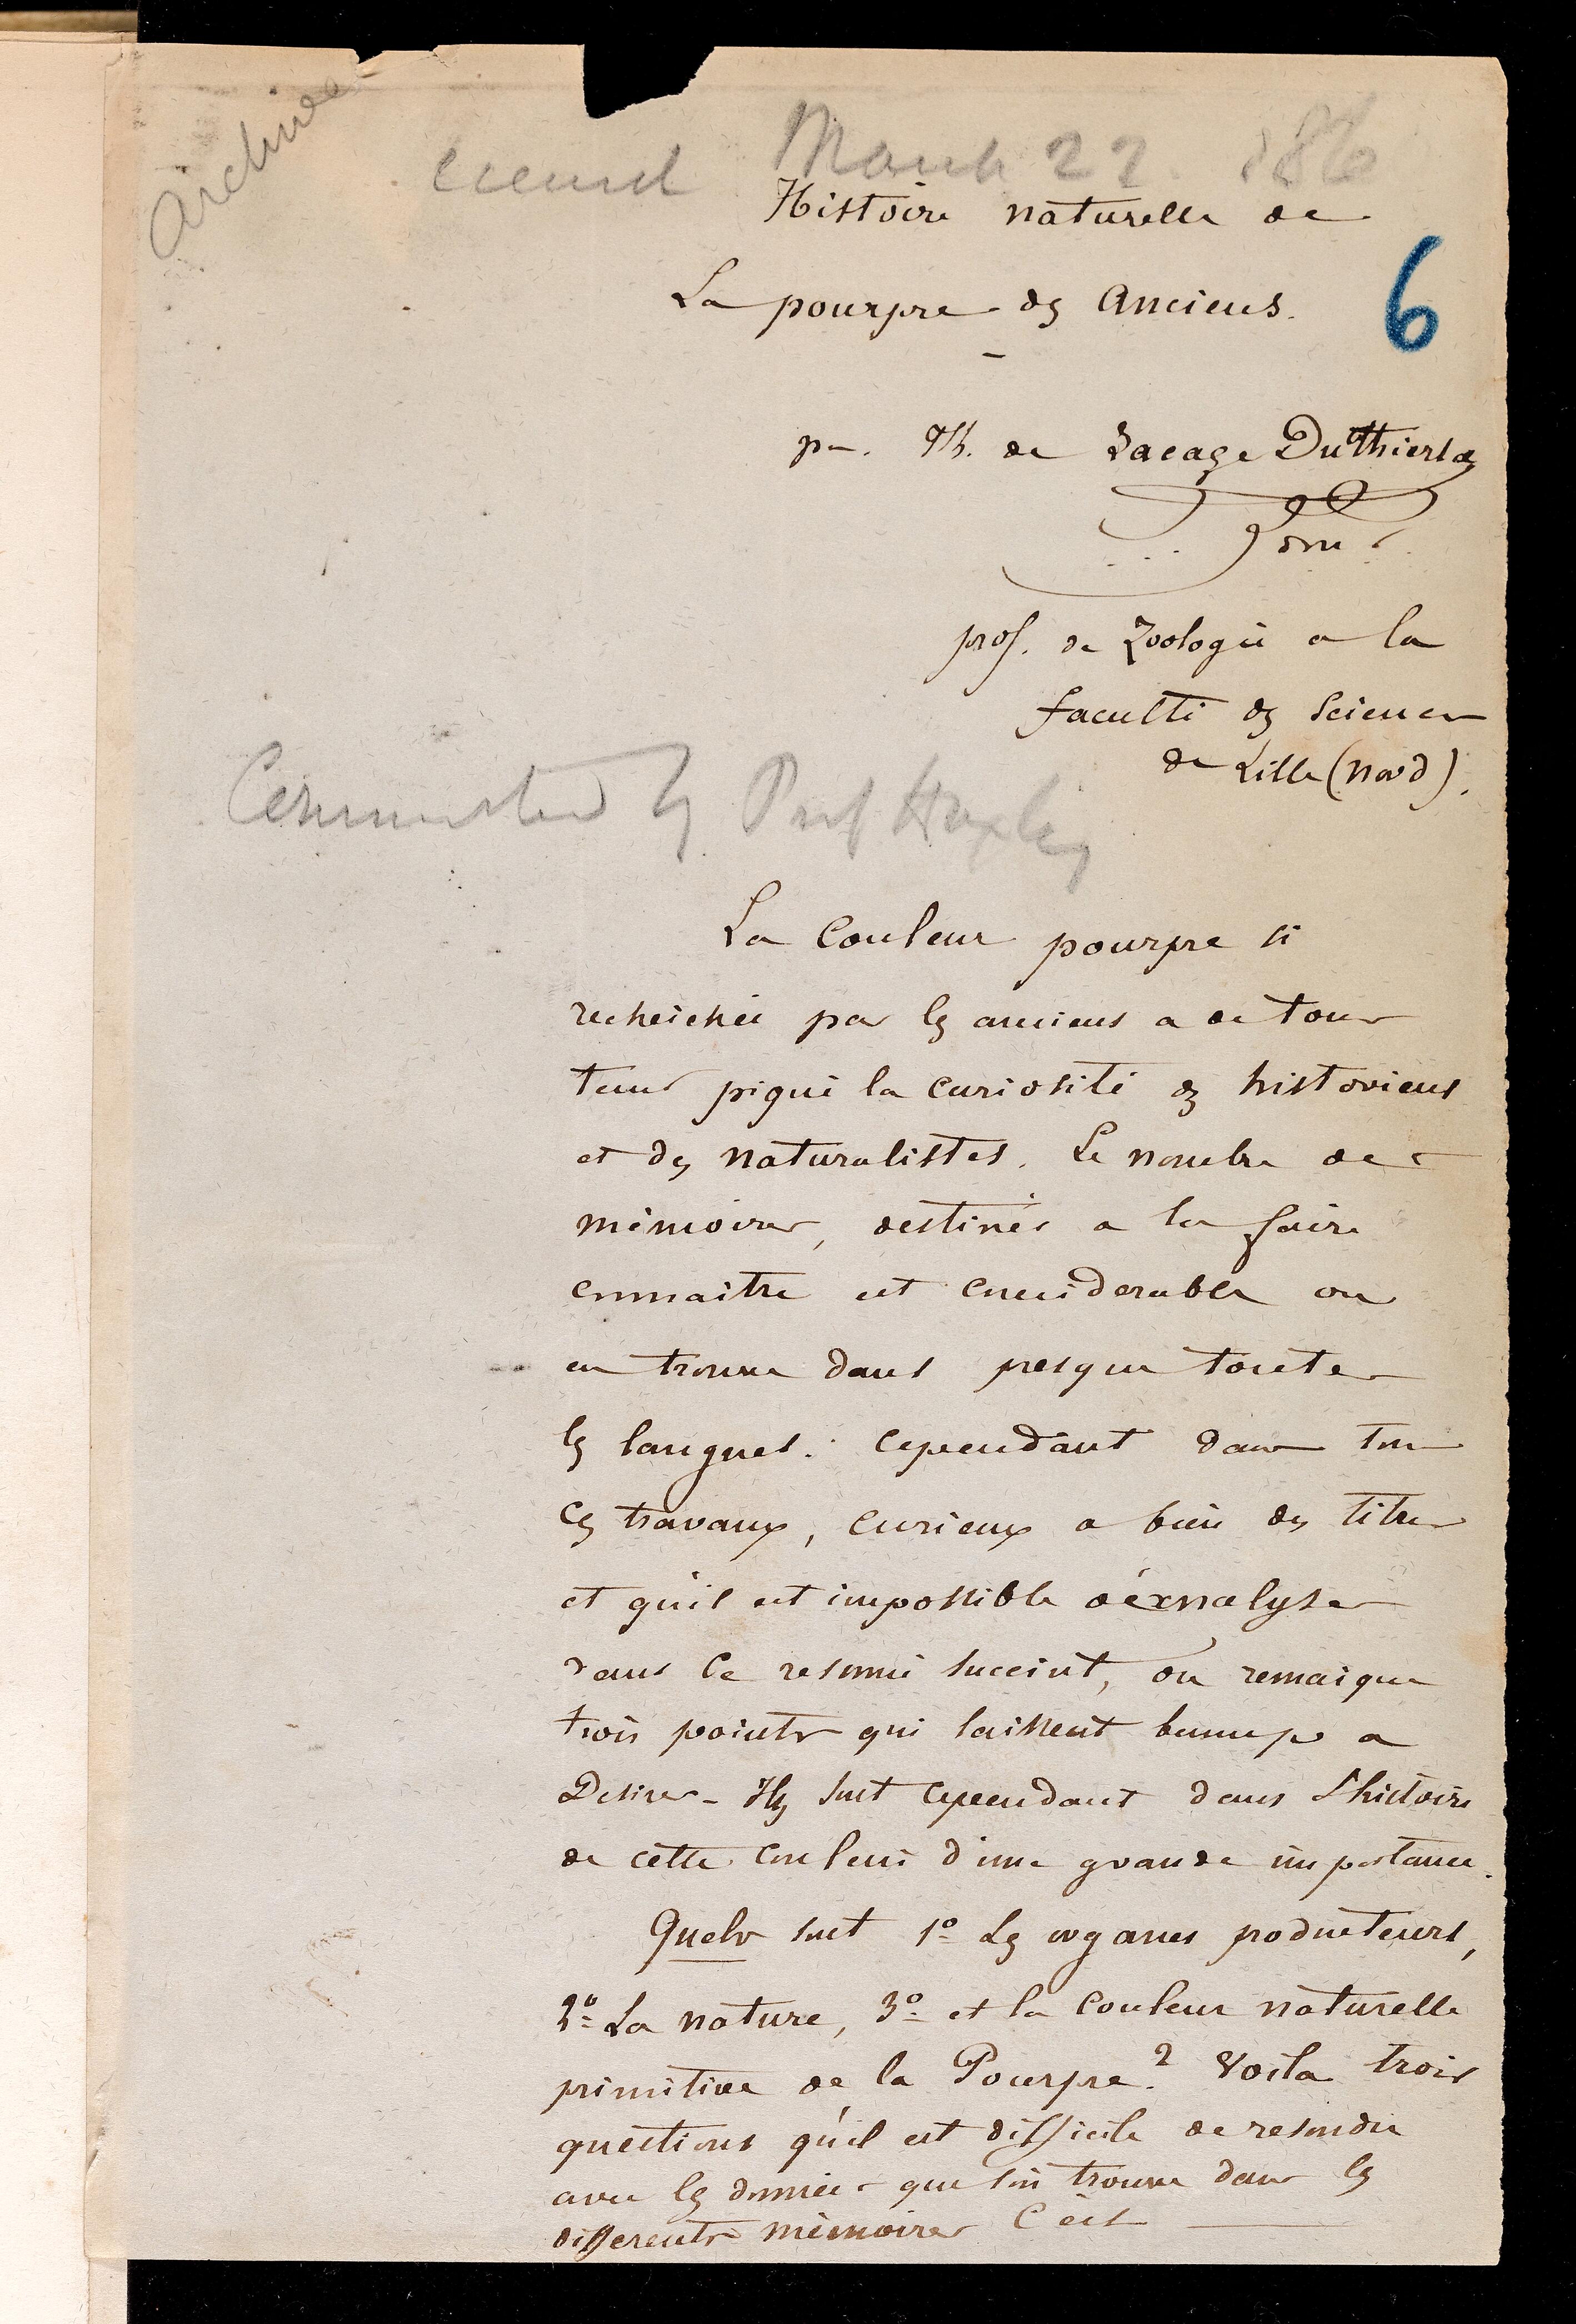 Archives
March 22 186
Histoire naturelle de
La pourpre des Anciens.
6
par. H. de Lacaze Duthiers
prof. de Zoologie a la
faculté des Sciences
de Lille (Nord).
Communicated by Prof Huxley
La Couleur pourpre si
recherchée par les anciens a de tous
tems piqué la curiosité des historiens
et des naturalistes. Le nombre des
mémoires, destinés a la faire
connaitre est considerable on
en trouve dans presque toutes
les langues. Cependant dans tous
ces travaux, curieux a bien des titres
et qu'il est impossible d'analyser
dans ce resumé succint, on remarque
trois points qui laissent beaucoup a
Desirer - Ils sont cependant dans l'histoire
de cette couleur d'une grande importance.
Quels sont 1º Les organes producteurs,
2º La nature, 3º et la couleur naturelle
primitive de la Pourpre? Voila trois
questions qu'il est difficile de resoudre
avec les données que l'on trouve dans les
differents mémoires C'est